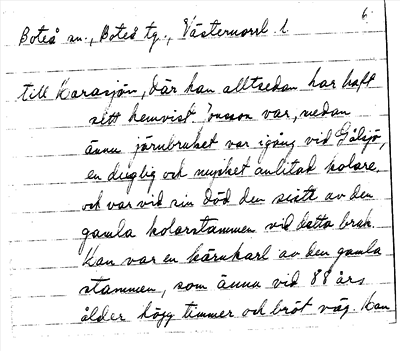 Boteå sn., Boteå tg., Västernorrl. l. 6.
till Karasjön, där han alltsedan har haft
sitt hemvist. Jonsson var, medan
ännu järnbruket var igång vid Gålsjö,
en duglig och mycket anlitad kolare,
och var vid sin död den siste av den
gamla kolarstammen vid detta bruk.
Han var en kärnkarl av den gamla
stammen, som ännu vid 88 års
ålder högg timmer och bröt väg. Han